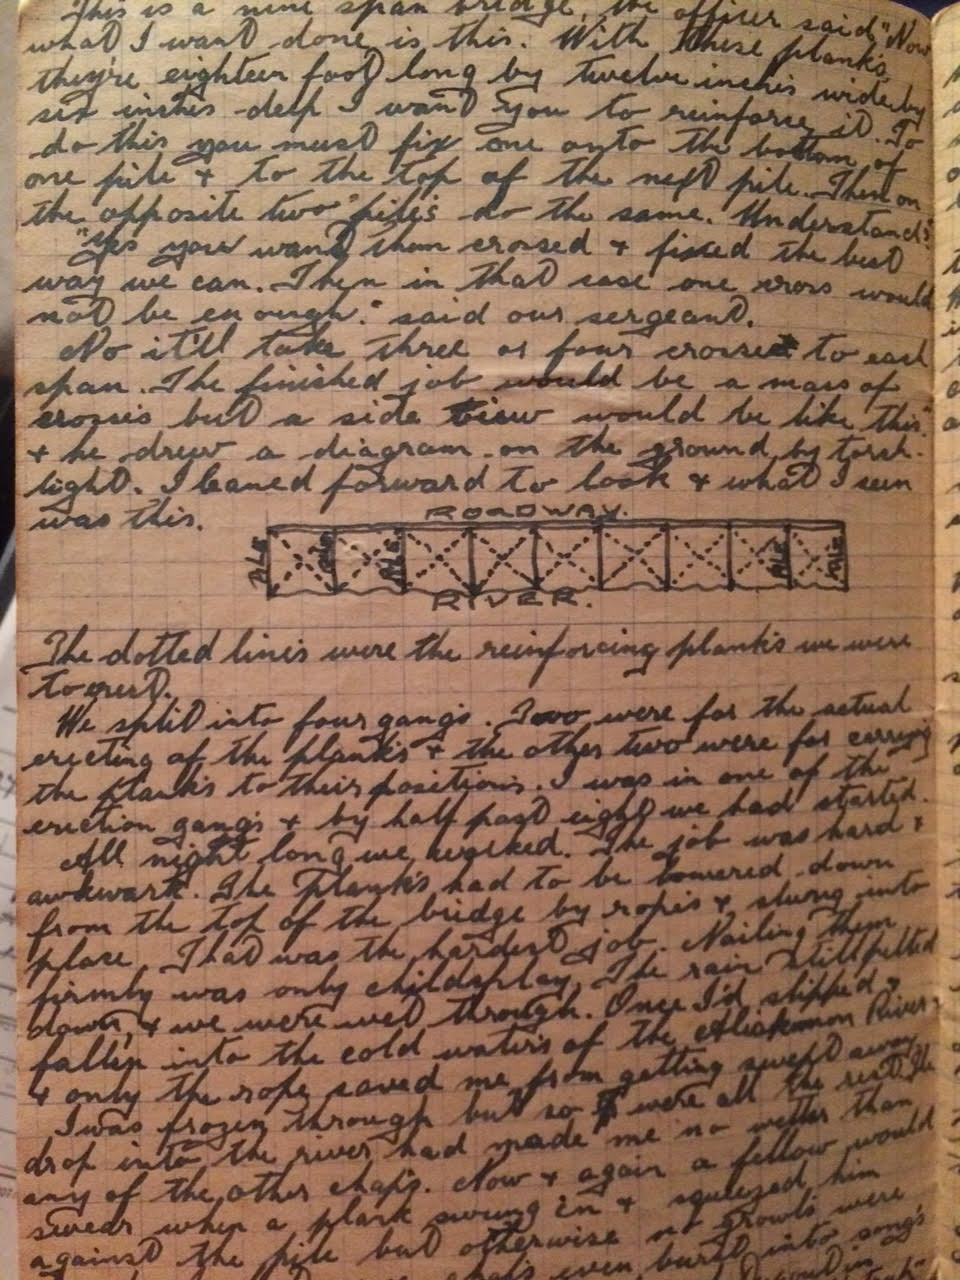 This is a nine span bridge, the officer said "Now
what I want done is this. With these planks,
they're eighteen foot long by twelve inches wide by
six inches deep I want you to reinforce it. To
do this you must fix one onto the bottom of
one pile + to the top of the next pile. Then on
the opposite two piles do the same. Understand?"
"Yes you want them crossed + fixed the best
way we can. Then in that case one cross would
not be enough." said our sergeant.
No it'll take three or four crosses to each
span. The finished job would be a mass of
crosses but a side view would be like this."
+ he drew a diagram on the ground by torch-
light. I leaned forward to look + what I seen
was this.
ROADWAY.
PILE PILE PILE PILE PILE
RIVER.
The dotted lines were the reinforcing planks we were
to erect.
We split into four gangs. Two were for the actual
erecting of the planks + the other two were for carrying
the planks to their positions. I was in one of the
erection gangs + by half past eight we had started.
All night long we worked. The job was hard +
awkward. The planks had to be lowered down
from the top of the bridge by ropes + slung into
place. That was the hardest job. Nailing them
firmly was only childsplay. The rain still pelted
down, + we were wet through. Once I'd slipped +
fallen into the cold waters of the Aliakmon River,
+ only the rope saved me from getting swept away.
I was frozen through but so were all the rest. The
drop into the river had made me no wetter than
any of the other chaps. Now + again a fellow would
swear when a plank swung in + squeezed him
against the pile but otherwise no growls were
even burst into songs